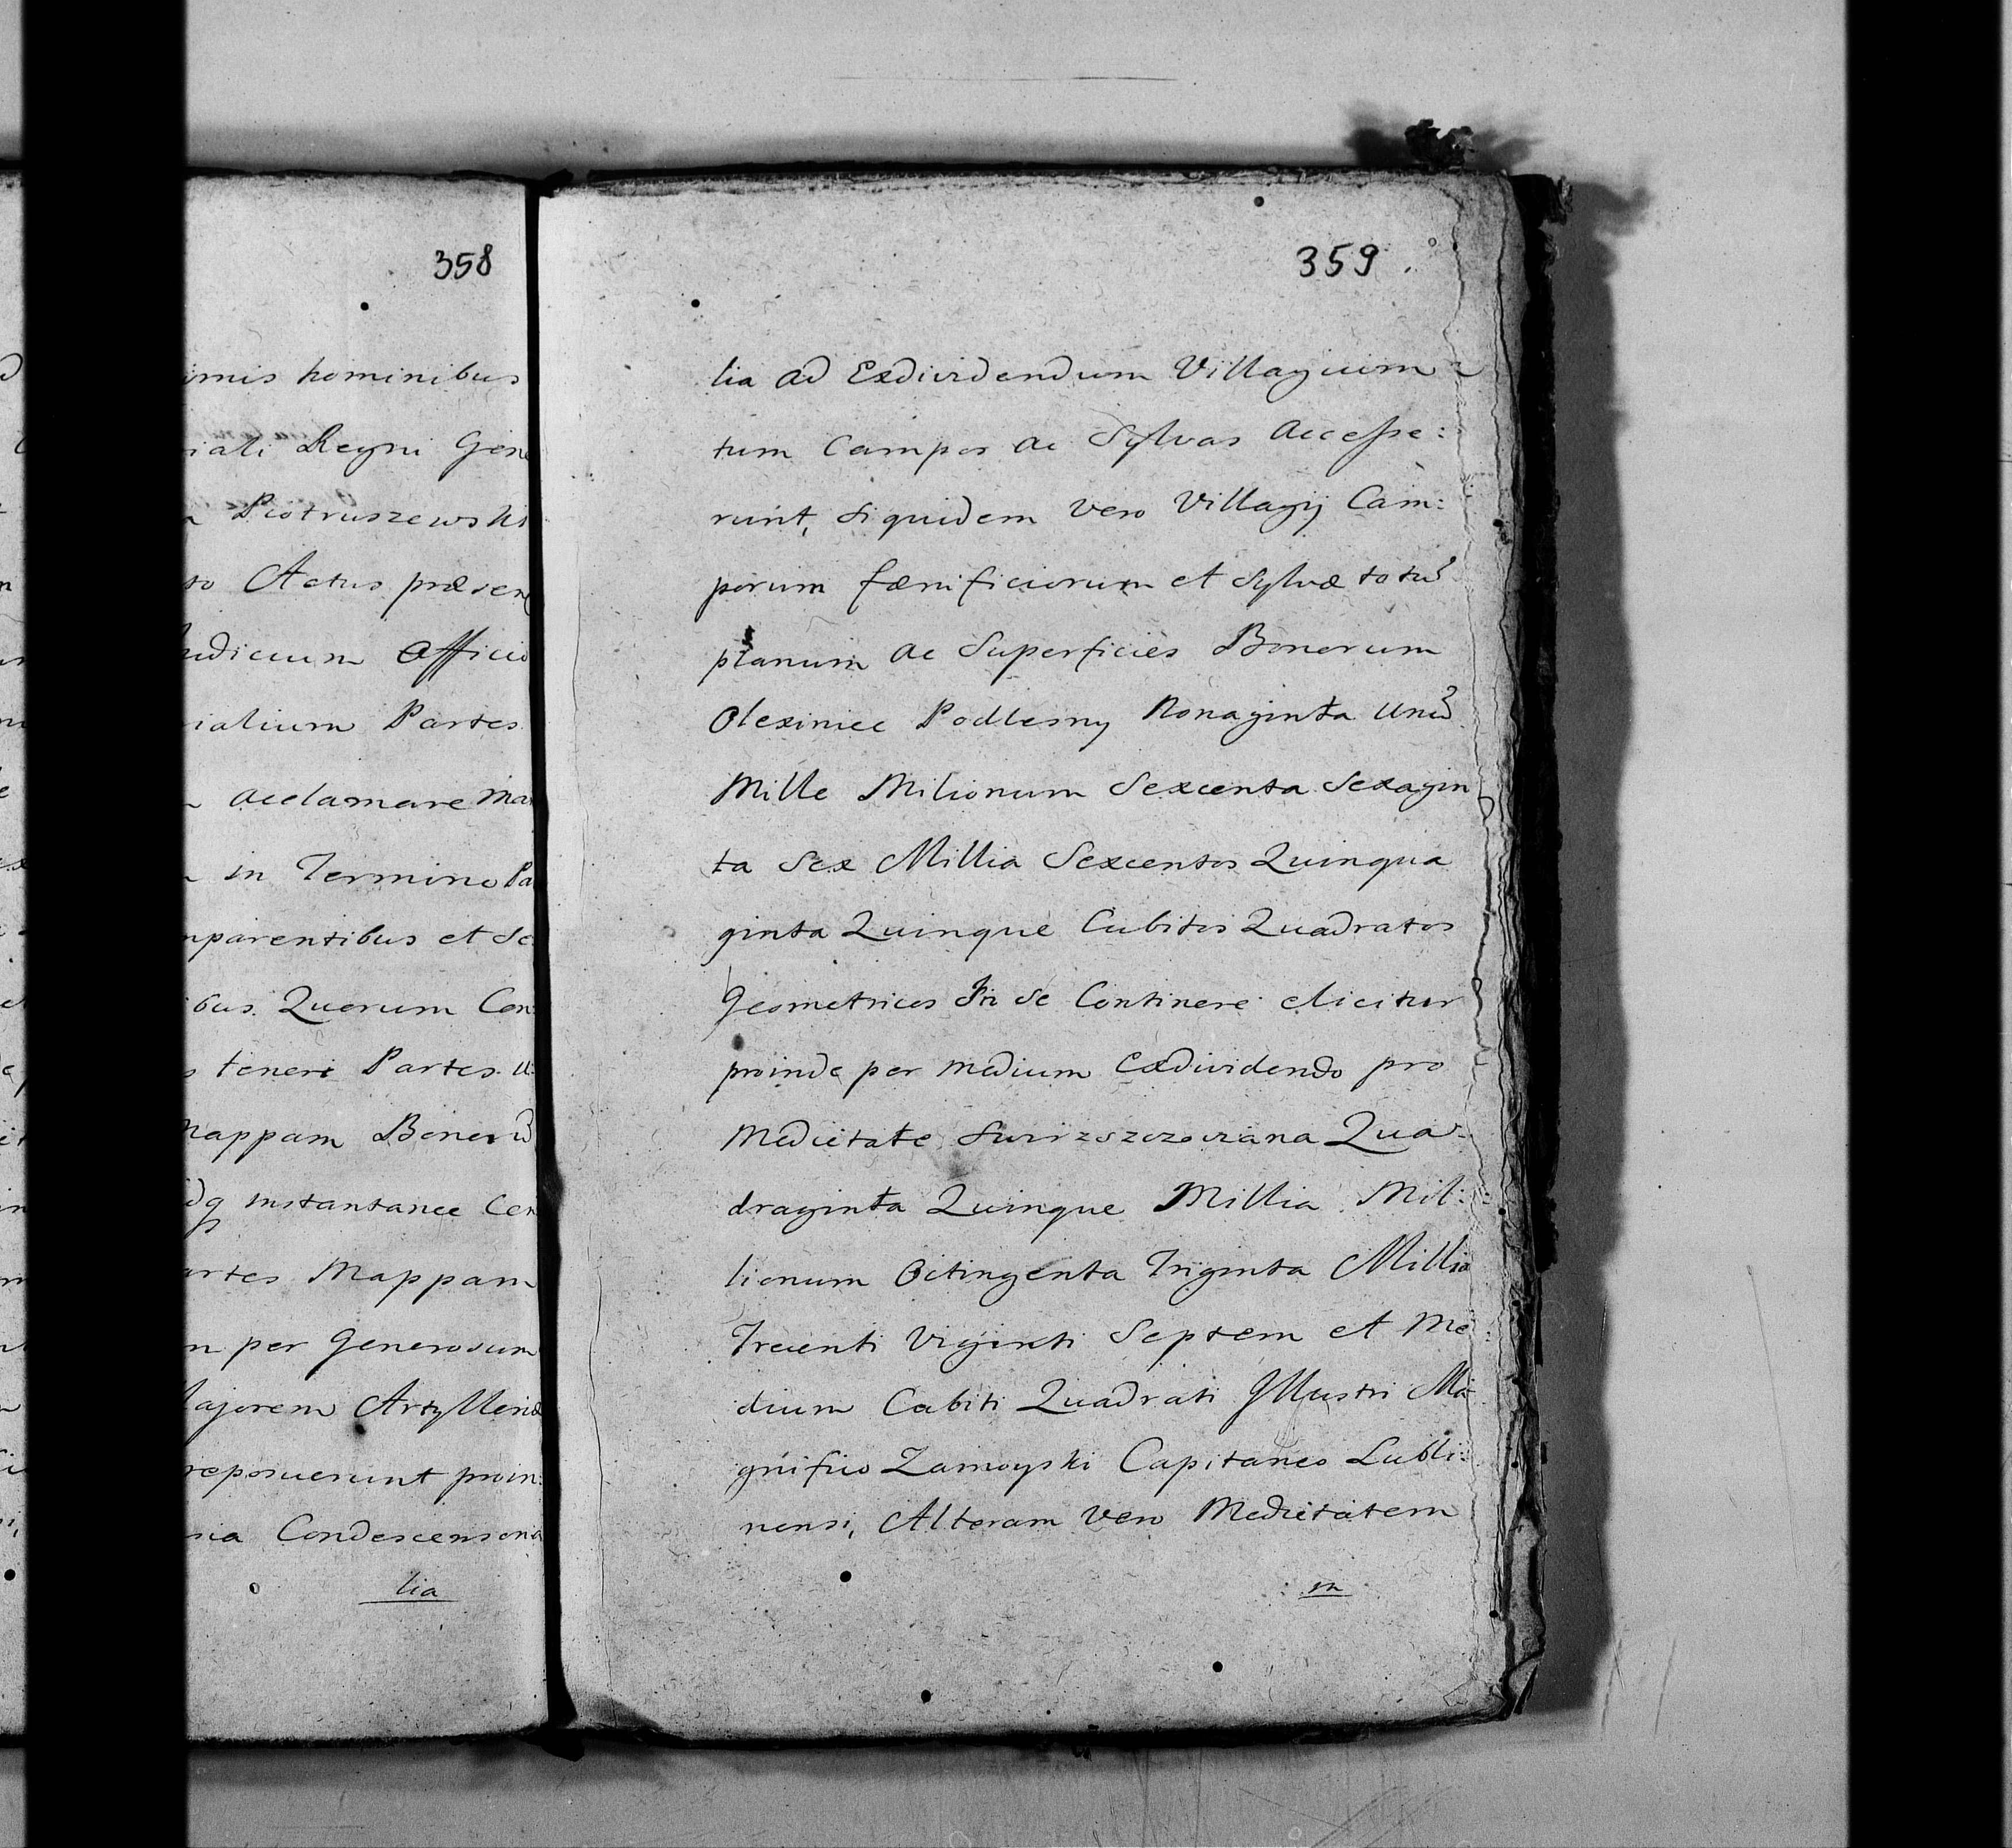 358
imis hominibus
iali Regni Gene
Piotruszewski
so Actus præsen
udicium Officio
ialium Partes
acclamare Man
in Termino Pa
mparentibus et Se
ibus. Quorum Con:
s teneri Partes. U:
Mappam Bonorũ
dq instantanee Cer
artes Mappam
n per Generosum
Majorem Artylleriæ
reposuerunt proin:
sia Condescensoria
lia
359
lia ad Exdividendum Villagium
tum Campos ac Sylvas Accesse:
runt, siquidem vero Villagij Cam:
porum fœnificiorum et Sylvæ totũ
planum ac Superficies Bonorum
Olexiniec Podlesny Nonaginta Unũ
Mille Milionum Sexcenta Sexagin
ta Sex Millia Sexcentos Quinqua
ginta Quinque Cubitos Quadratos
Geometricos In se Continere elicitur
proinde per medium Exdividendo pro
Medietate Quа
draginta Quinque Millia Mil:
lionum Octingenta Triginta Millia
Trecenti Viginti Septem et Me:
dium Cubiti Quadrati Illustri Ma
gnifico Zamoyski Capitaneo Lubli:
nensi, Alteram vero Medietatem
m